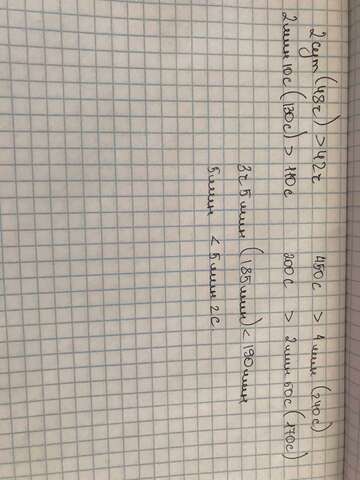 2 сут (48ч) > 42ч 450с > 4 мин (240с)
2 мин 10с (130с) > 110с 200с > 2 мин 50с (170с)
3ч 5 мин (185 мин) < 190 мин
5 мин < 5 мин 2с.